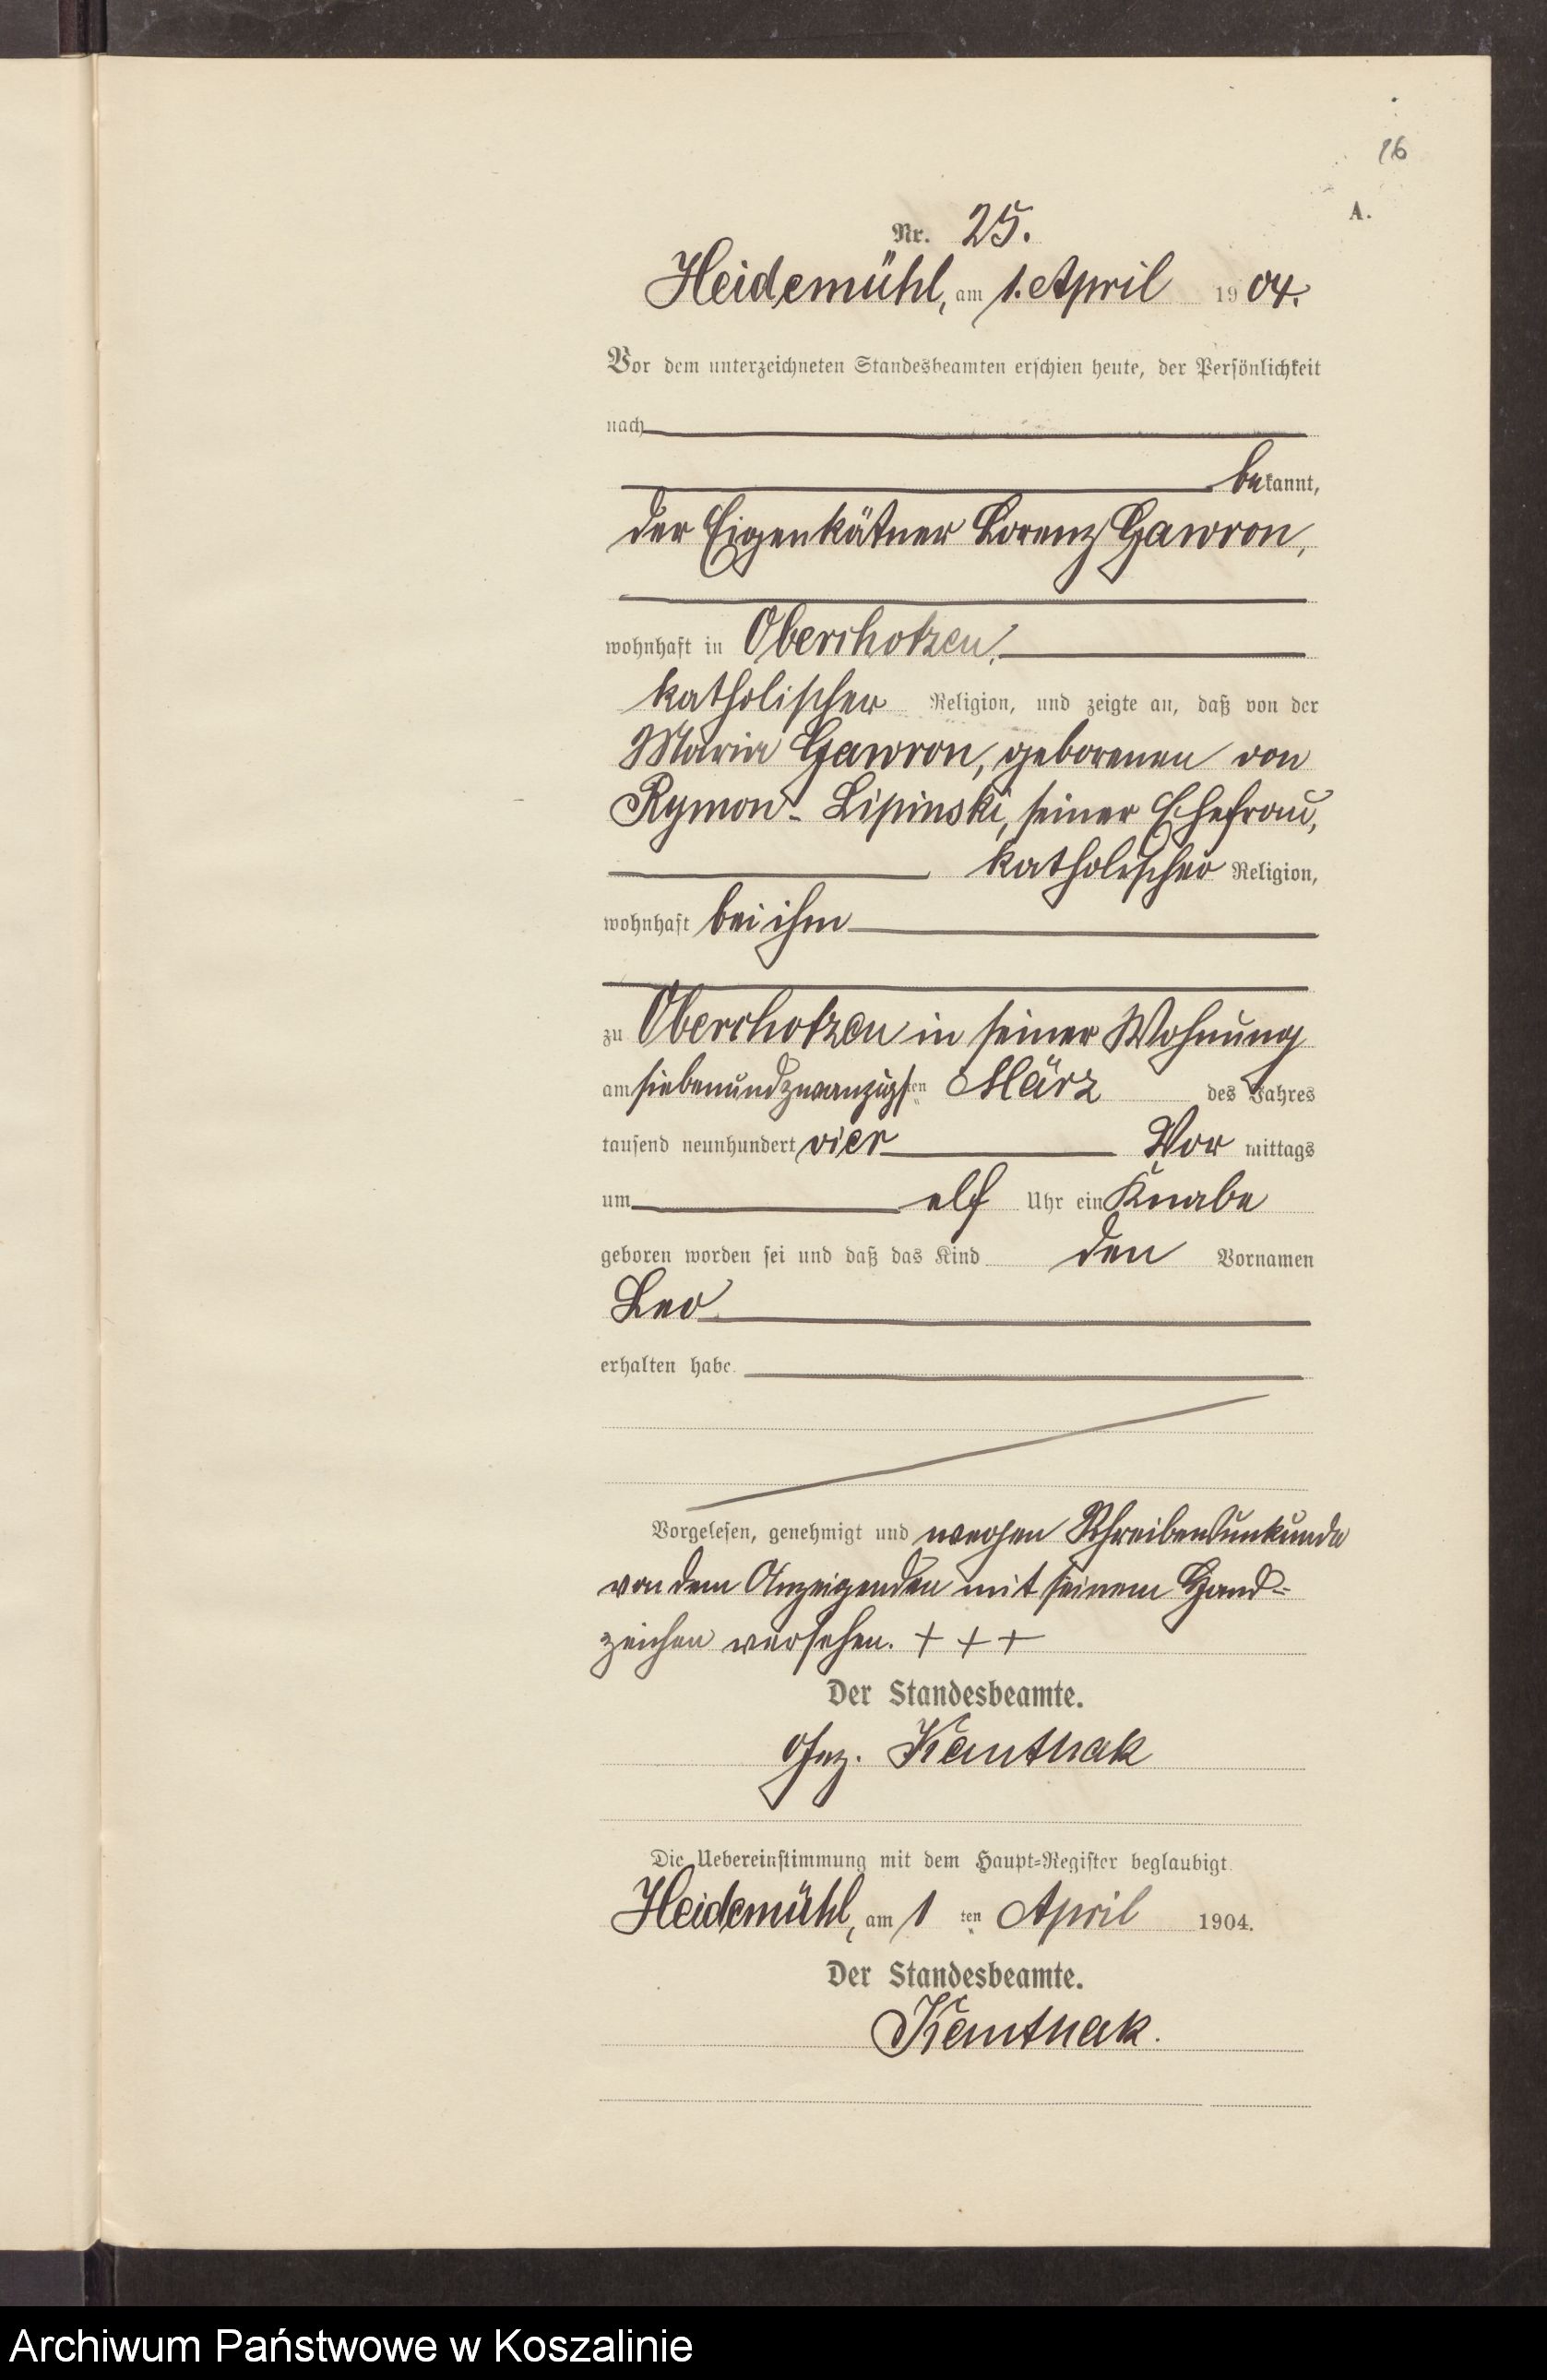 16
A.
Nr. 25.
Heidemühl, am 1. April 1904.
Vor dem unterzeichneten Standesbeamten erschien heute, der Persönlichkeit
nach
bekannt,
der Eigenkätner Lorenz Gawron,
wohnhaft in Oberchotzen,
katholischer Religion, und zeigte an, daß von der
Maria Gawron, geborenen von
Rymon-Lipinski, seiner Ehefrau,
katholischer Religion,
wohnhaft bei ihm
zu Oberchotzen in seiner Wohnung
am siebenundzwanzigsten März des Jahres
tausend neunhundert vier Vormittags
um elf Uhr ein Knabe
geboren worden sei und daß das Kind den Vornamen
Leo
erhalten habe.
Vorgelesen, genehmigt und wegen Schreibensunkunde
von dem Anzeigenden mit seinem Hand-
zeichen versehen. + + +
Der Standesbeamte.
Gez. Kemtnak
Die Uebereinstimmung mit dem Haupt-Register beglaubigt.
Heidemühl, am 1ten April 1904.
Der Standesbeamte.
Kemtnak.
Archiwum Państwowe w Koszalinie